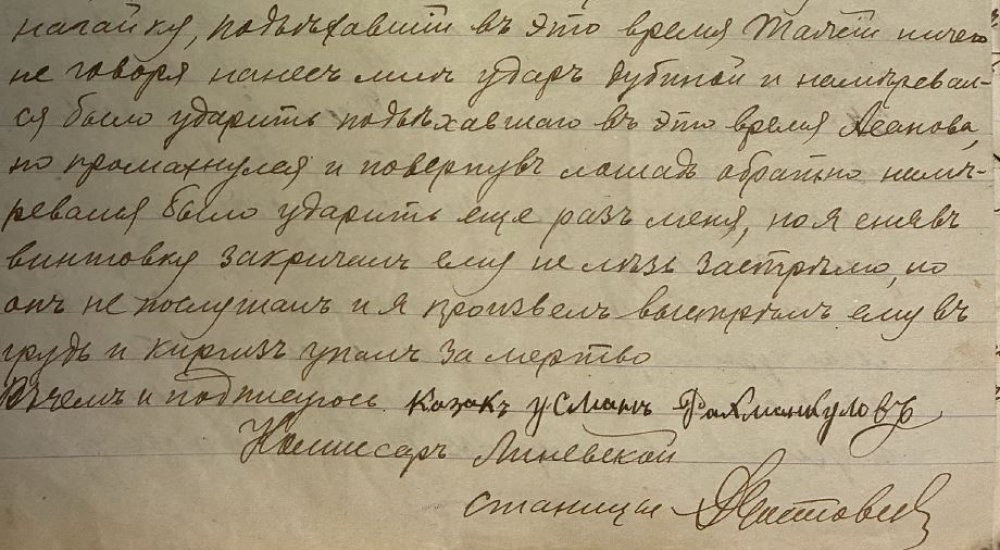 нагайку, подъѣхавшiй въ это время Талѣй ничего
не говоря нанесъ мнѣ ударъ дубиной и намѣревал-
ся было ударить подъѣхавшаго въ это время Асанова,
но промахнулся и повернувъ лошадь обратно намѣ-
ревался было ударить еще разъ меня, но я снявъ
винтовку закричалъ ему не лѣзь застрѣлю, но
онъ не послушалъ и я произвелъ выстрѣлъ ему въ
грудь и киргизъ упалъ за мертво
Въ чемъ и подписуюсь казакъ усманъ Рахманкуловъ
Комиссаръ Линевской
станицы